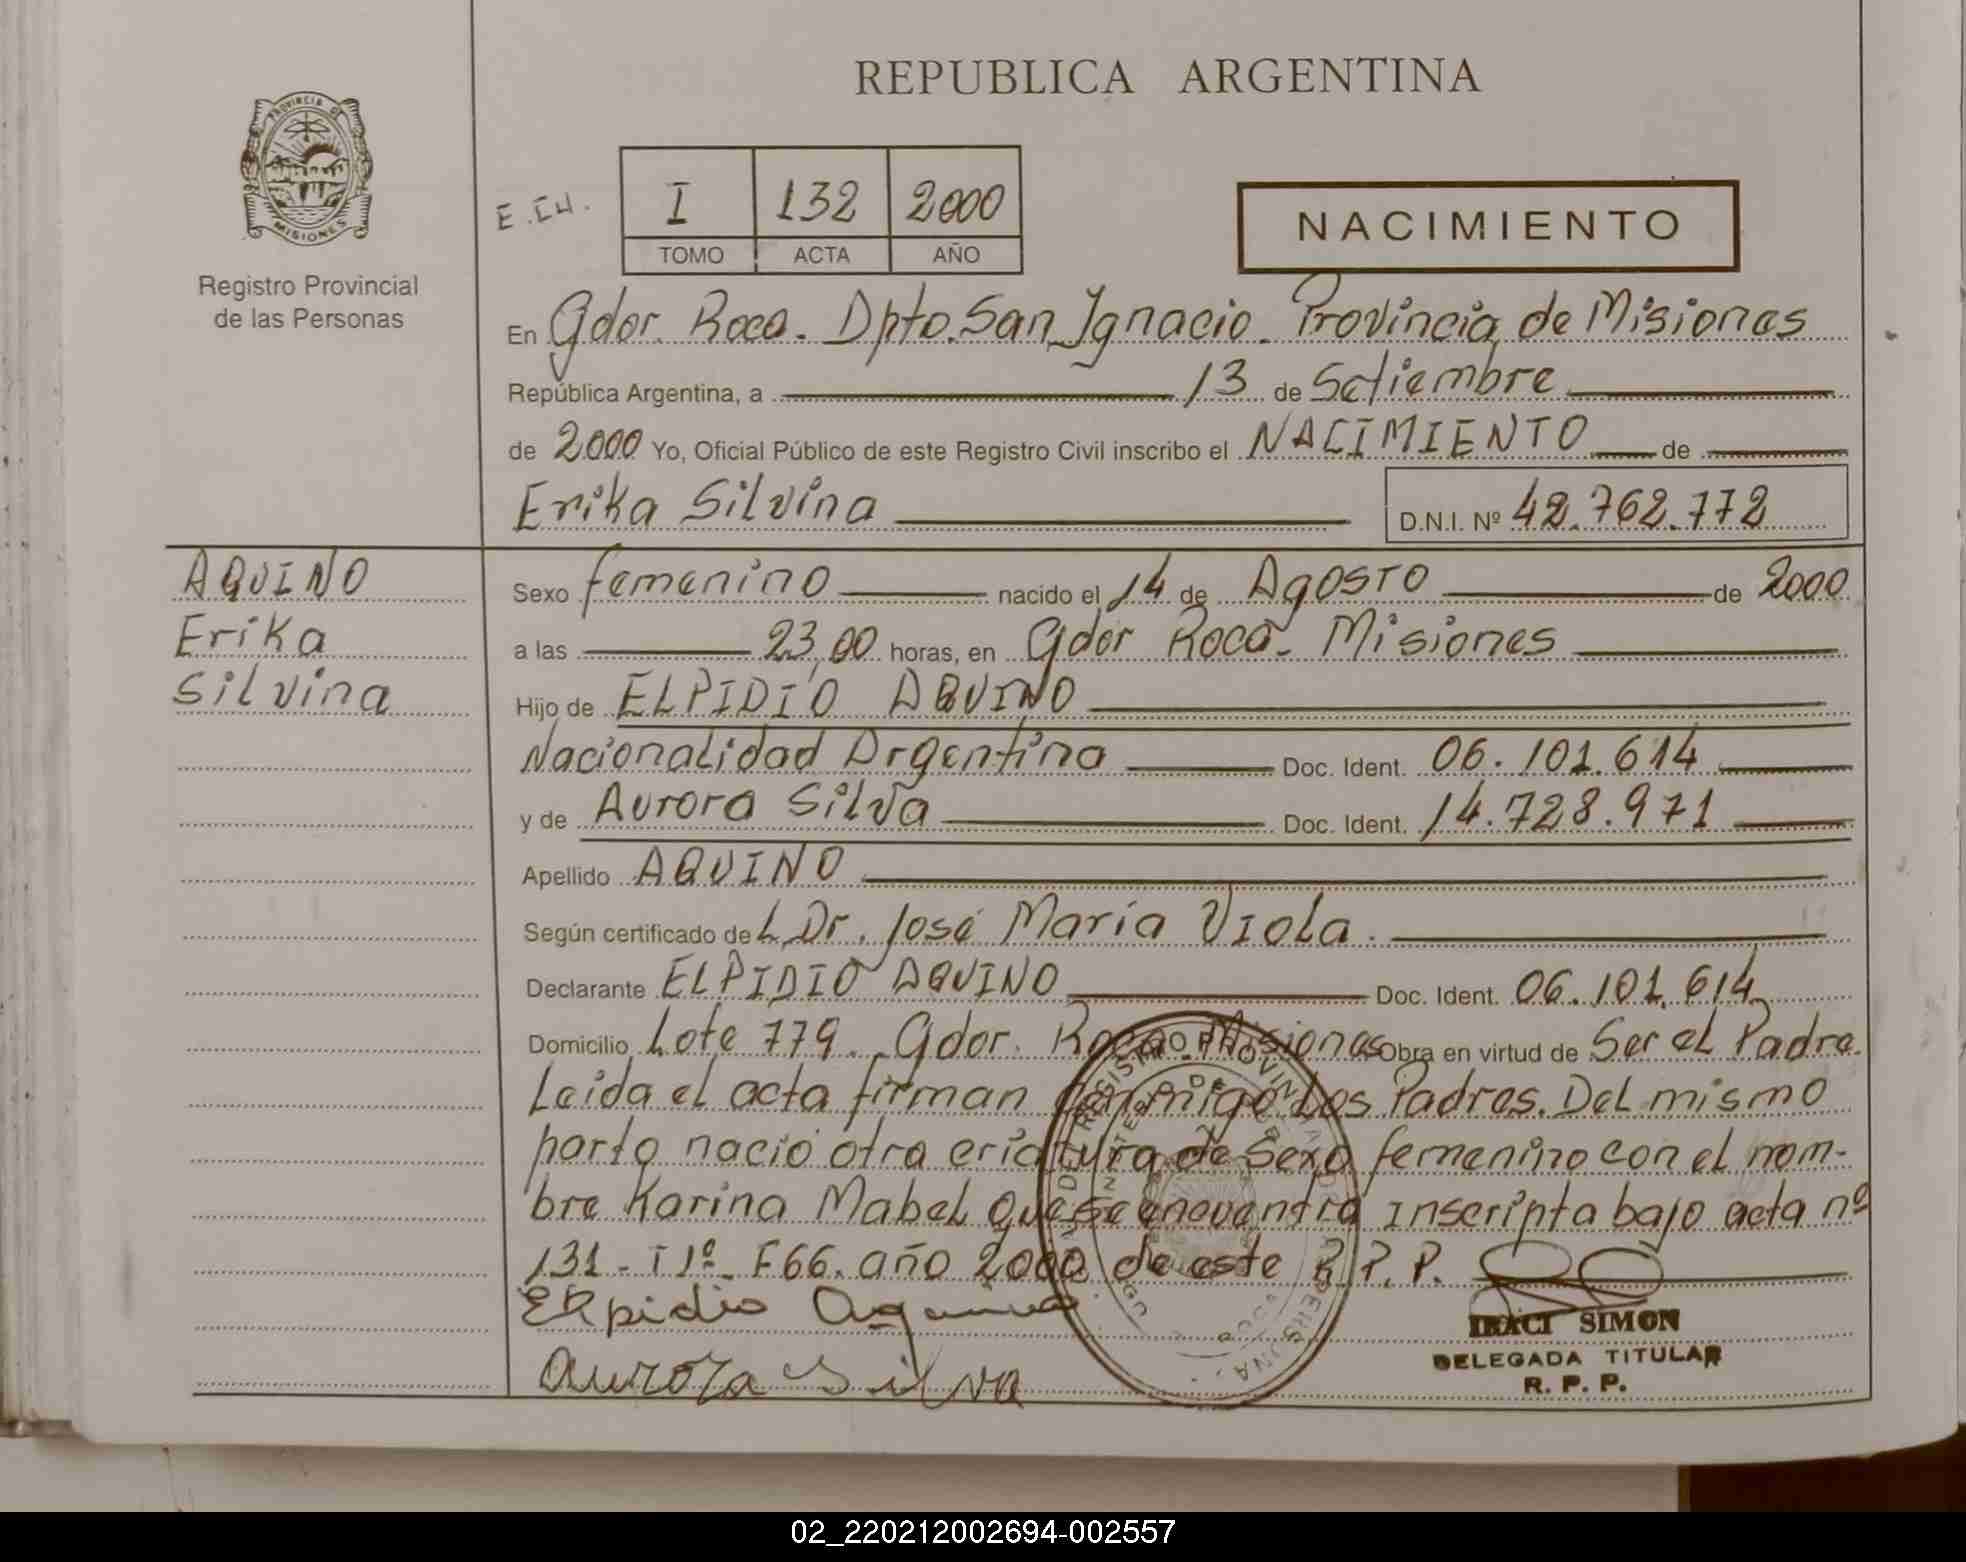 REPUBLICA ARGENTINA
PROVINCIA DE
MISIONES
Registro Provincial
de las Personas
I 132 2000
TOMO ACTA AÑO
NACIMIENTO
En Gdor. Roca. Dpto. San Ignacio. Provincia de Misiones
República Argentina, a 13 de Setiembre
de 2000 Yo, Oficial Público de este Registro Civil inscribo el NACIMIENTO de
Erika Silvina D.N.I. Nº 42.762.772
AQUINO
Erika
Silvina
Sexo femenino nacido el 14 de Agosto de 2000
a las 23,00 horas, en Gdor Roca. Misiones
Hijo de ELPIDIO AQUINO
Nacionalidad Argentina Doc. Ident. 06.101.614
y de Aurora Silva Doc. Ident. 14.728.971
Apellido AQUINO
Según certificado del Dr. José María Viola.
Declarante ELPIDIO AQUINO Doc. Ident. 06.101.614
Domicilio Lote 779. Gdor. Roca. Misiones Obra en virtud de Ser el Padre.
Leida el acta firman conmigo Los Padres. Del mismo
parto nació otra criatura de Sexo femenino con el nom-
bre Karina Mabel que se encuentra inscripta bajo acta nº
131 - T1º - F66. año 2000 de este R.P.P.
Elpidio Aquino
aurora Silva
IRACI SIMON
DELEGADA TITULAR
R. P. P.
02_220212002694-002557